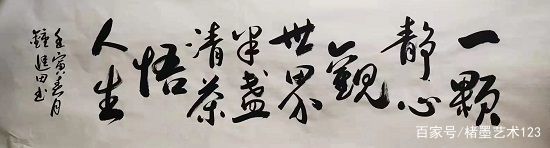 一颗
静心
觀
世界
半盏
清茶
悟
人生
壬寅春月
鐘田书
百家号/楮墨艺术123